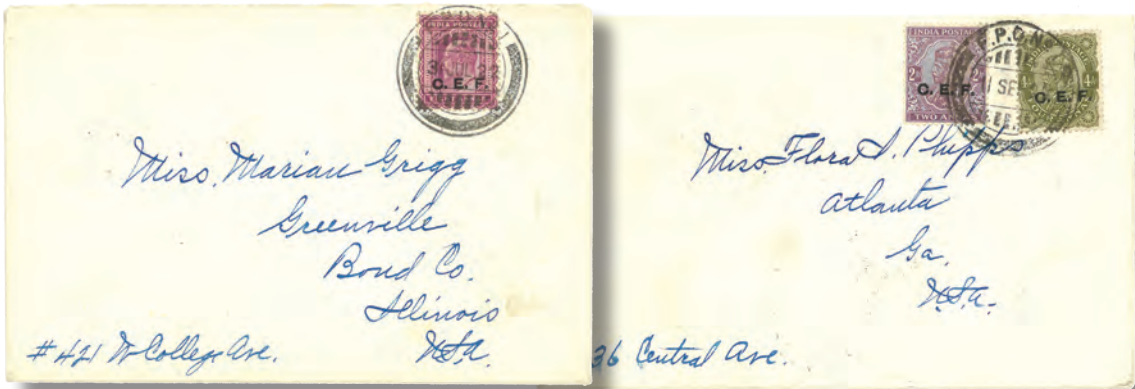 INDIA POSTAGE
C. E. F.
Miss. Marian Grigg
Greenville
Bond Co.
Illinois
USA
#421 W College Ave.
INDIA POSTAGE
C. E. F.
TWO ANNAS
F.P.O. No
C. E. F.
Miss. Flora I. Phipps
Atlanta
Ga.
U.S.A.
36 Central Ave.